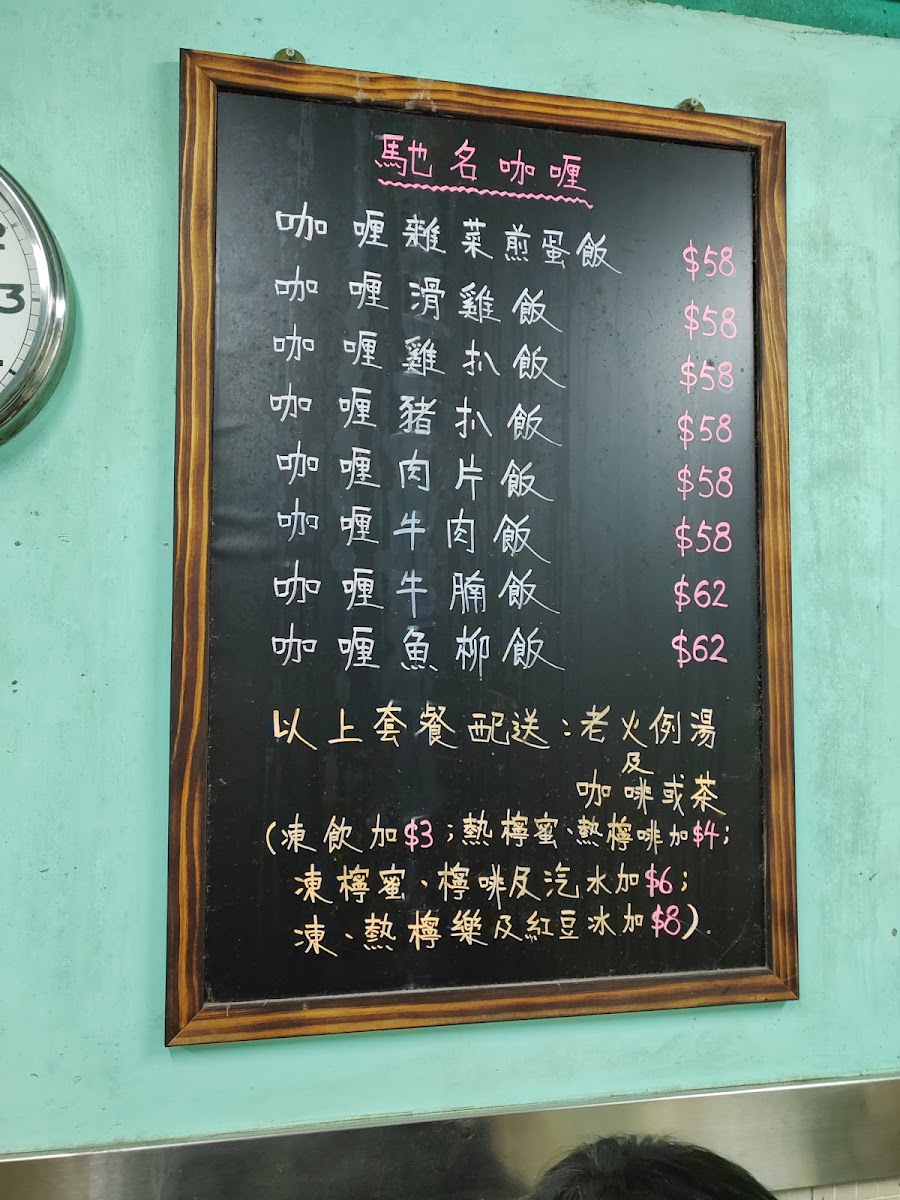 馳名咖喱
咖喱雜菜煎蛋飯 $58
咖喱滑雞飯 $58
咖喱雞扒飯 $58
咖喱豬扒飯 $58
咖喱肉片飯 $58
咖喱牛肉飯 $58
咖喱牛腩飯 $62
咖喱魚柳飯 $62
以上套餐配送：老火例湯
及
咖啡或茶
(凍飲加$3；熱檸蜜、熱檸啡加$4；
凍檸蜜、檸啡及汽水加$6；
凍、熱檸樂及紅豆冰加$8).
3